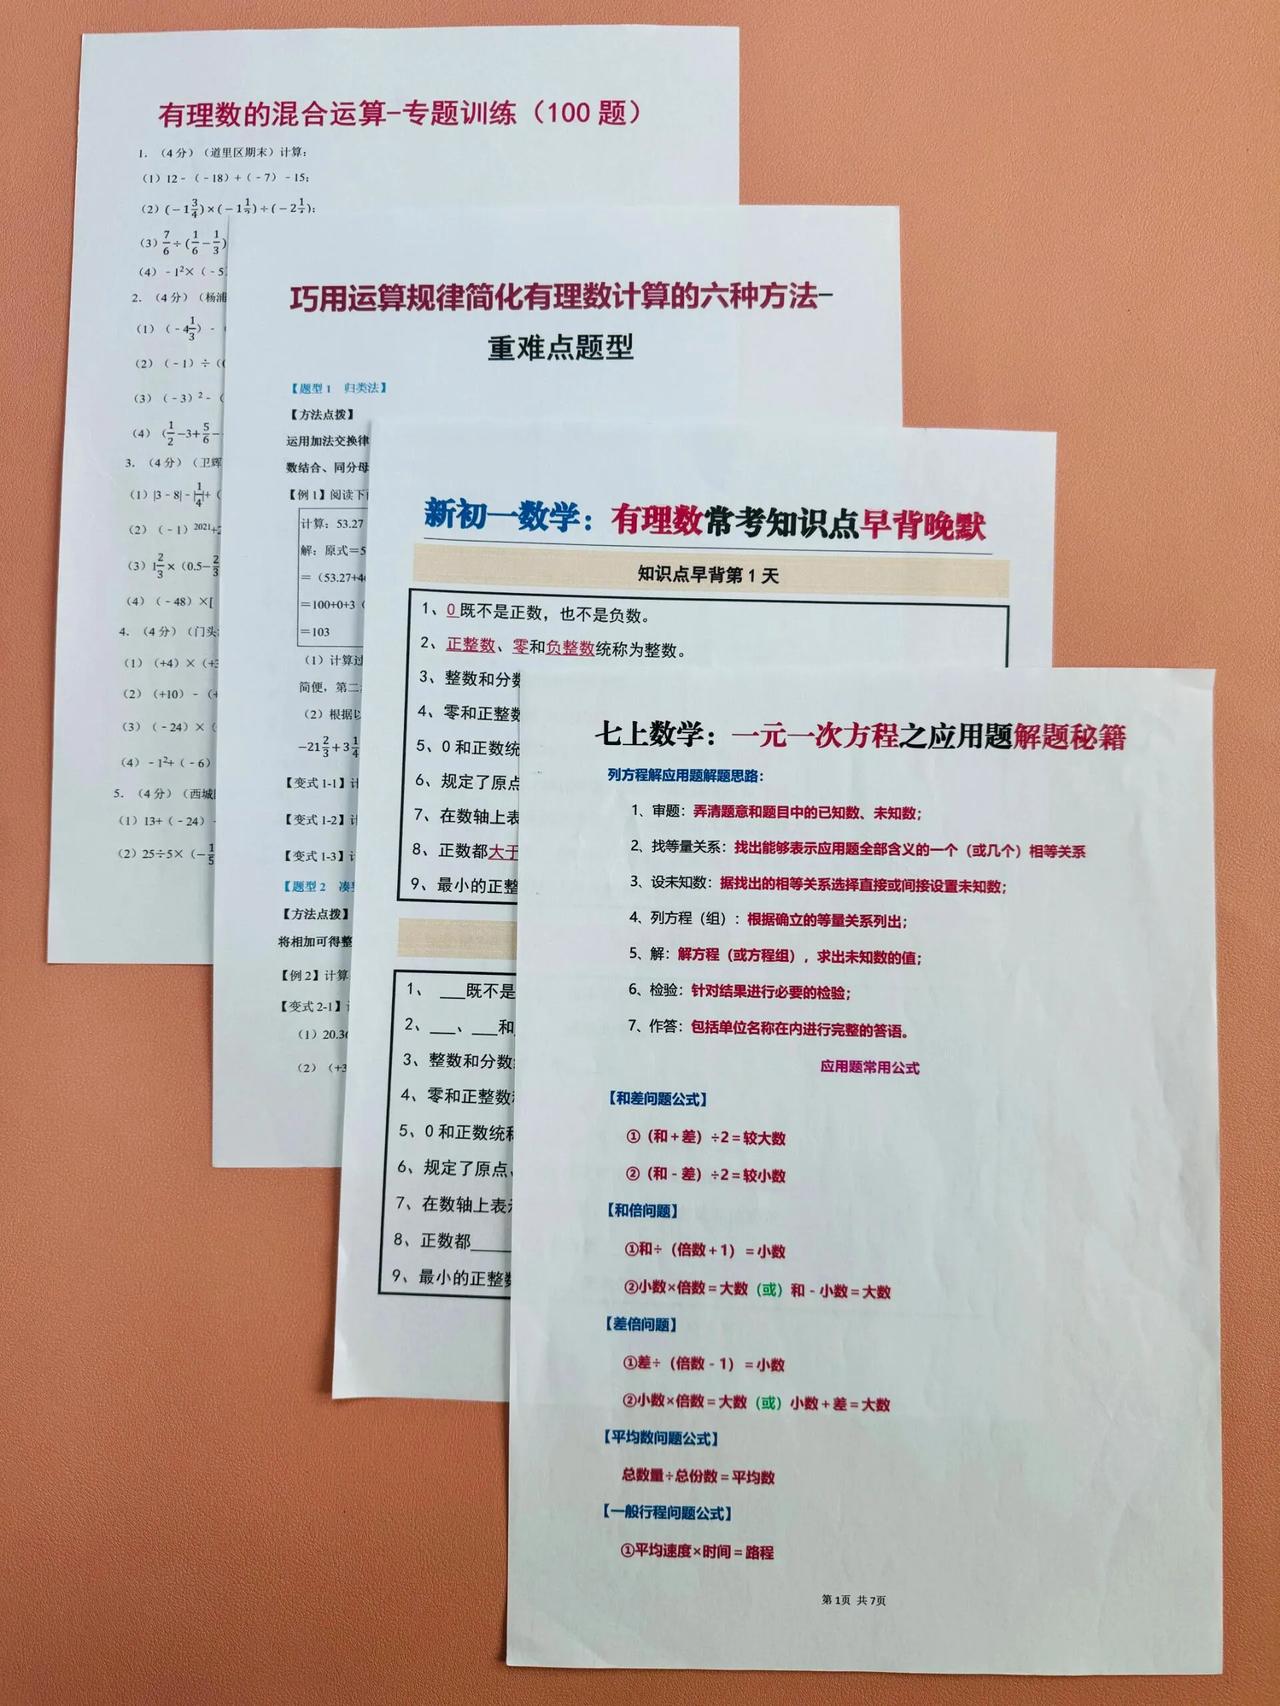 有理数的混合运算-专题训练（100 题）
1. （4 分）（道里区期末）计算：
（1）12－（－18）+（－7）－15；
（2）(－1 3/4)×(－1 1/2)÷(－2 1/
（3）7/6÷(1/6－1/3)
（4）－1²×（－5
2. （4 分）（杨浦
（1）（－4 1/3）－
（2）（－1）÷（
（3）（－3）²－（
（4）（1/2－3+5/6－
3. （4 分）（卫辉
（1）|3－8|－|1/4|+（
（2）（－1）²⁰²¹+2
（3）1 2/3×（0.5－2/3
（4）（－48）×[
4. （4 分）（门头
（1）（+4）×（+3
（2）（+10）－（+
（3）（－24）×（
（4）－1²+（－6）
5. （4 分）（西城
（1）13+（－24）－
（2）25÷5×（－1/5
巧用运算规律简化有理数计算的六种方法-
重难点题型
【题型 1 归类法】
【方法点拨】
运用加法交换律
数结合、同分母
【例 1】阅读下
计算：53.27
解：原式＝5
＝（53.27+4
＝100+0+3（
＝103
（1）计算过
简便，第二
（2）根据以
－21 2/3+3 1/4
【变式 1-1】计
【变式 1-2】计
【变式 1-3】计
【题型 2 凑
【方法点拨】
将相加可得整
【例 2】计算
【变式 2-1】
（1）20.36
（2）（+3
新初一数学：有理数常考知识点早背晚默
知识点早背第 1 天
1、0 既不是正数，也不是负数。
2、正整数、零和负整数统称为整数。
3、整数和分数
4、零和正整数
5、0 和正数统
6、规定了原点
7、在数轴上表
8、正数都大于
9、最小的正整
1、___既不是
2、___、___和
3、整数和分数
4、零和正整数
5、0 和正数统称
6、规定了原点、
7、在数轴上表示
8、正数都____
9、最小的正整数
七上数学：一元一次方程之应用题解题秘籍
列方程解应用题解题思路：
1、审题：弄清题意和题目中的已知数、未知数；
2、找等量关系：找出能够表示应用题全部含义的一个（或几个）相等关系
3、设未知数：据找出的相等关系选择直接或间接设置未知数；
4、列方程（组）：根据确立的等量关系列出；
5、解：解方程（或方程组），求出未知数的值；
6、检验：针对结果进行必要的检验；
7、作答：包括单位名称在内进行完整的答语。
应用题常用公式
【和差问题公式】
①（和＋差）÷2＝较大数
②（和－差）÷2＝较小数
【和倍问题】
①和÷（倍数＋1）＝小数
②小数×倍数＝大数（或）和－小数＝大数
【差倍问题】
①差÷（倍数－1）＝小数
②小数×倍数＝大数（或）小数＋差＝大数
【平均数问题公式】
总数量÷总份数＝平均数
【一般行程问题公式】
①平均速度×时间＝路程
第 1页 共 7页